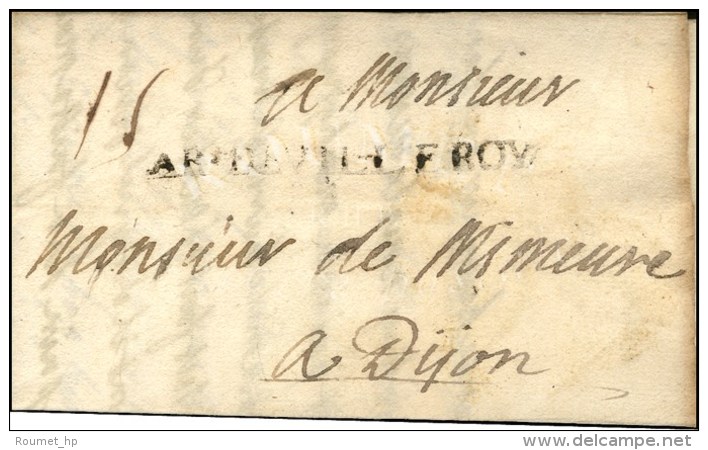 15
a Monsieur
AR. DE VILLEROY
Monsieur de Mismeure
a Dijon
Roumet_hp
delcampe.net